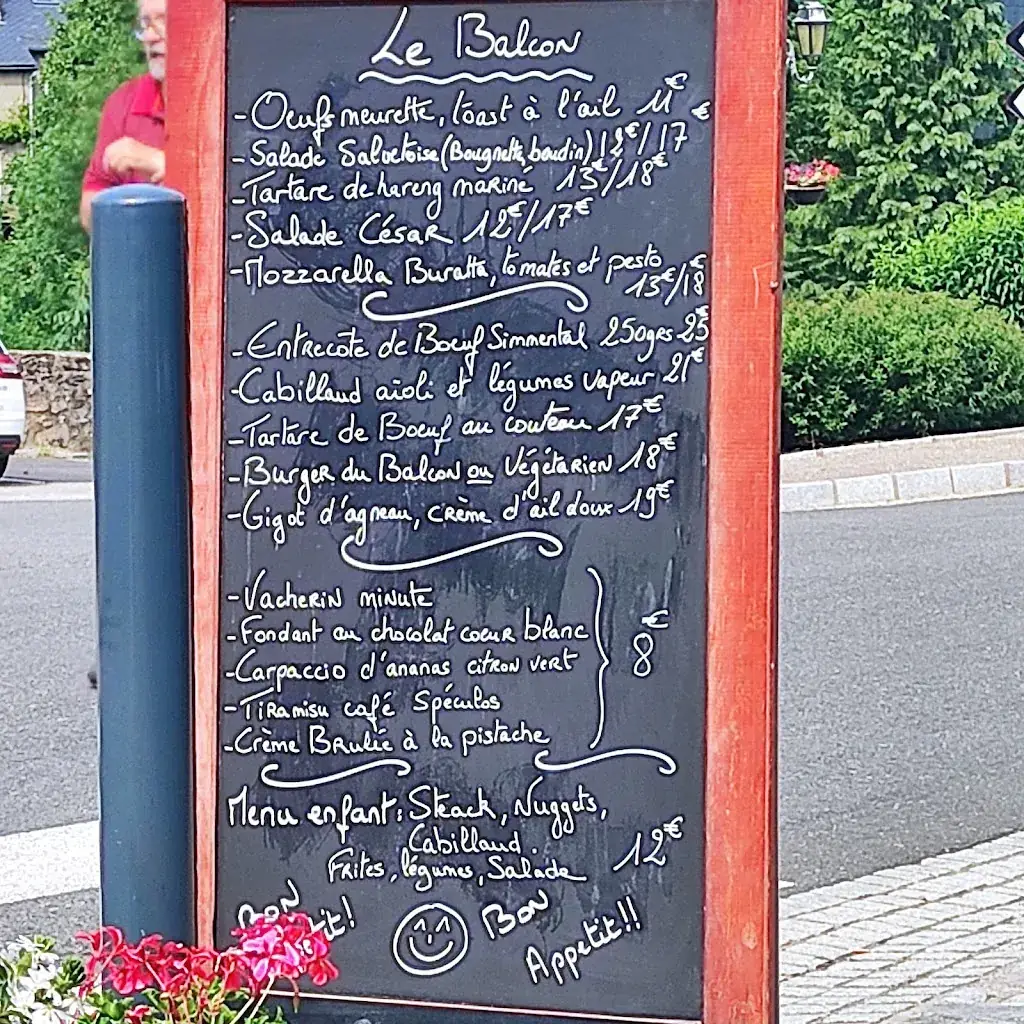 Le Balcon
- Oeufs meurette, toast à l'ail 11€
- Salade Salvetoise (Bougnette, boudin) 12€/17€
- Tartare de hareng mariné 13€/18€
- Salade César 12€/17€
- Mozzarella Buratta, tomates et pesto
13€/18€
- Entrecote de Boeuf Simmental 250grs 25€
- Cabillaud aïoli et légumes vapeur 21€
- Tartare de Boeuf au couteau 17€
- Burger du Balcon ou Végétarien 18€
- Gigot d'agneau, crème d'ail doux 19€
- Vacherin minute
- Fondant au chocolat coeur blanc
- Carpaccio d'ananas citron vert
8€
- Tiramisu café Spéculos
- Crème Brulée à la pistache
Menu enfant : Steack, Nuggets,
Cabillaud.
Frites, légumes, Salade 12€
Bon
Bon
Appetit!!